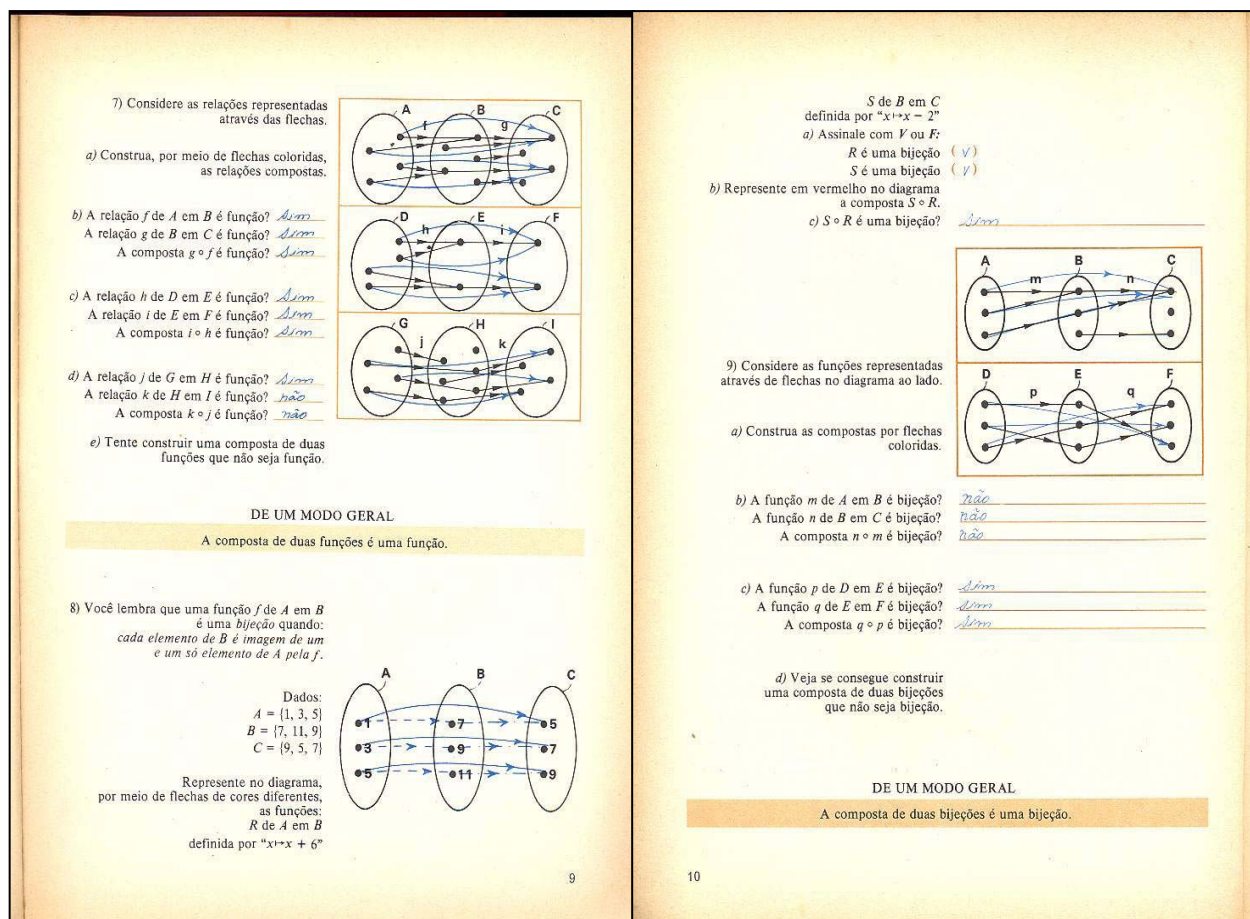 7) Considere as relações representadas
através das flechas.
a) Construa, por meio de flechas coloridas,
as relações compostas.
b) A relação f de A em B é função? Sim
A relação g de B em C é função? Sim
A composta g ∘ f é função? Sim
c) A relação h de D em E é função? Sim
A relação i de E em F é função? Sim
A composta i ∘ h é função? Sim
d) A relação j de G em H é função? Sim
A relação k de H em I é função? não
A composta k ∘ j é função? não
e) Tente construir uma composta de duas
funções que não seja função.
A B C
f g
D E F
h i
G H I
j k
DE UM MODO GERAL
A composta de duas funções é uma função.
8) Você lembra que uma função f de A em B
é uma bijeção quando:
cada elemento de B é imagem de um
e um só elemento de A pela f.
Dados:
A = {1, 3, 5}
B = {7, 11, 9}
C = {9, 5, 7}
Represente no diagrama,
por meio de flechas de cores diferentes,
as funções:
R de A em B
definida por “x↦x + 6”
A B C
1 7 5
3 9 7
5 11 9
9
S de B em C
definida por “x↦x − 2”
a) Assinale com V ou F:
R é uma bijeção (V)
S é uma bijeção (V)
b) Represente em vermelho no diagrama
a composta S ∘ R.
c) S ∘ R é uma bijeção? Sim
A B C
m n
9) Considere as funções representadas
através de flechas no diagrama ao lado.
a) Construa as compostas por flechas
coloridas.
D E F
p q
b) A função m de A em B é bijeção? não
A função n de B em C é bijeção? não
A composta n ∘ m é bijeção? não
c) A função p de D em E é bijeção? sim
A função q de E em F é bijeção? sim
A composta q ∘ p é bijeção? sim
d) Veja se consegue construir
uma composta de duas bijeções
que não seja bijeção.
DE UM MODO GERAL
A composta de duas bijeções é uma bijeção.
10